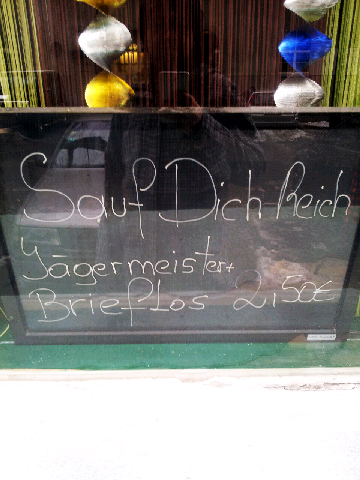 Sauf Dich Reich
Jägermeister+
Brieflos 2,50€